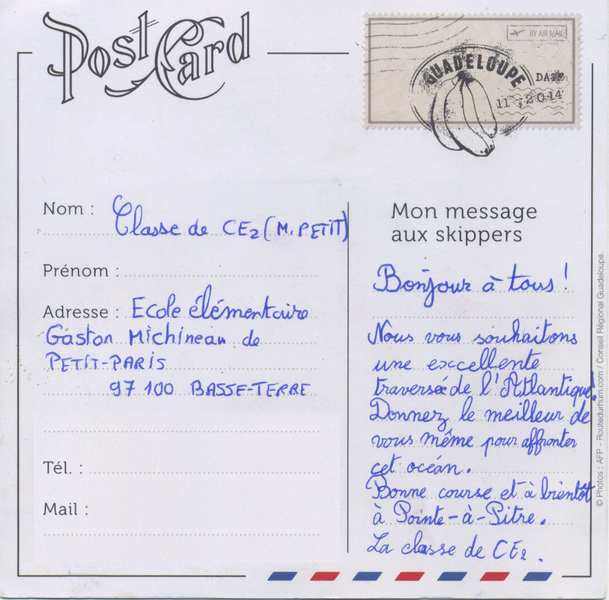 Post Card
BY AIR MAIL
GUADELOUPE
DATE
11 , 2014
Nom : Classe de CE2 (M. PETIT)
Prénom :
Adresse : Ecole élémentaire
Gaston Michineau de
PETIT-PARIS
97 100 BASSE-TERRE
Tél. :
Mail :
Mon message
aux skippers
Bonjour à tous !
Nous vous souhaitons
une excellente
traversée de l'Atlantique!
Donnez le meilleur de
vous même pour affronter
cet océan.
Bonne course et à bientôt
à Pointe-à-Pitre.
La classe de CE2.
© Photos : AFP - Routedurhum.com / Conseil Régional Guadeloupe.